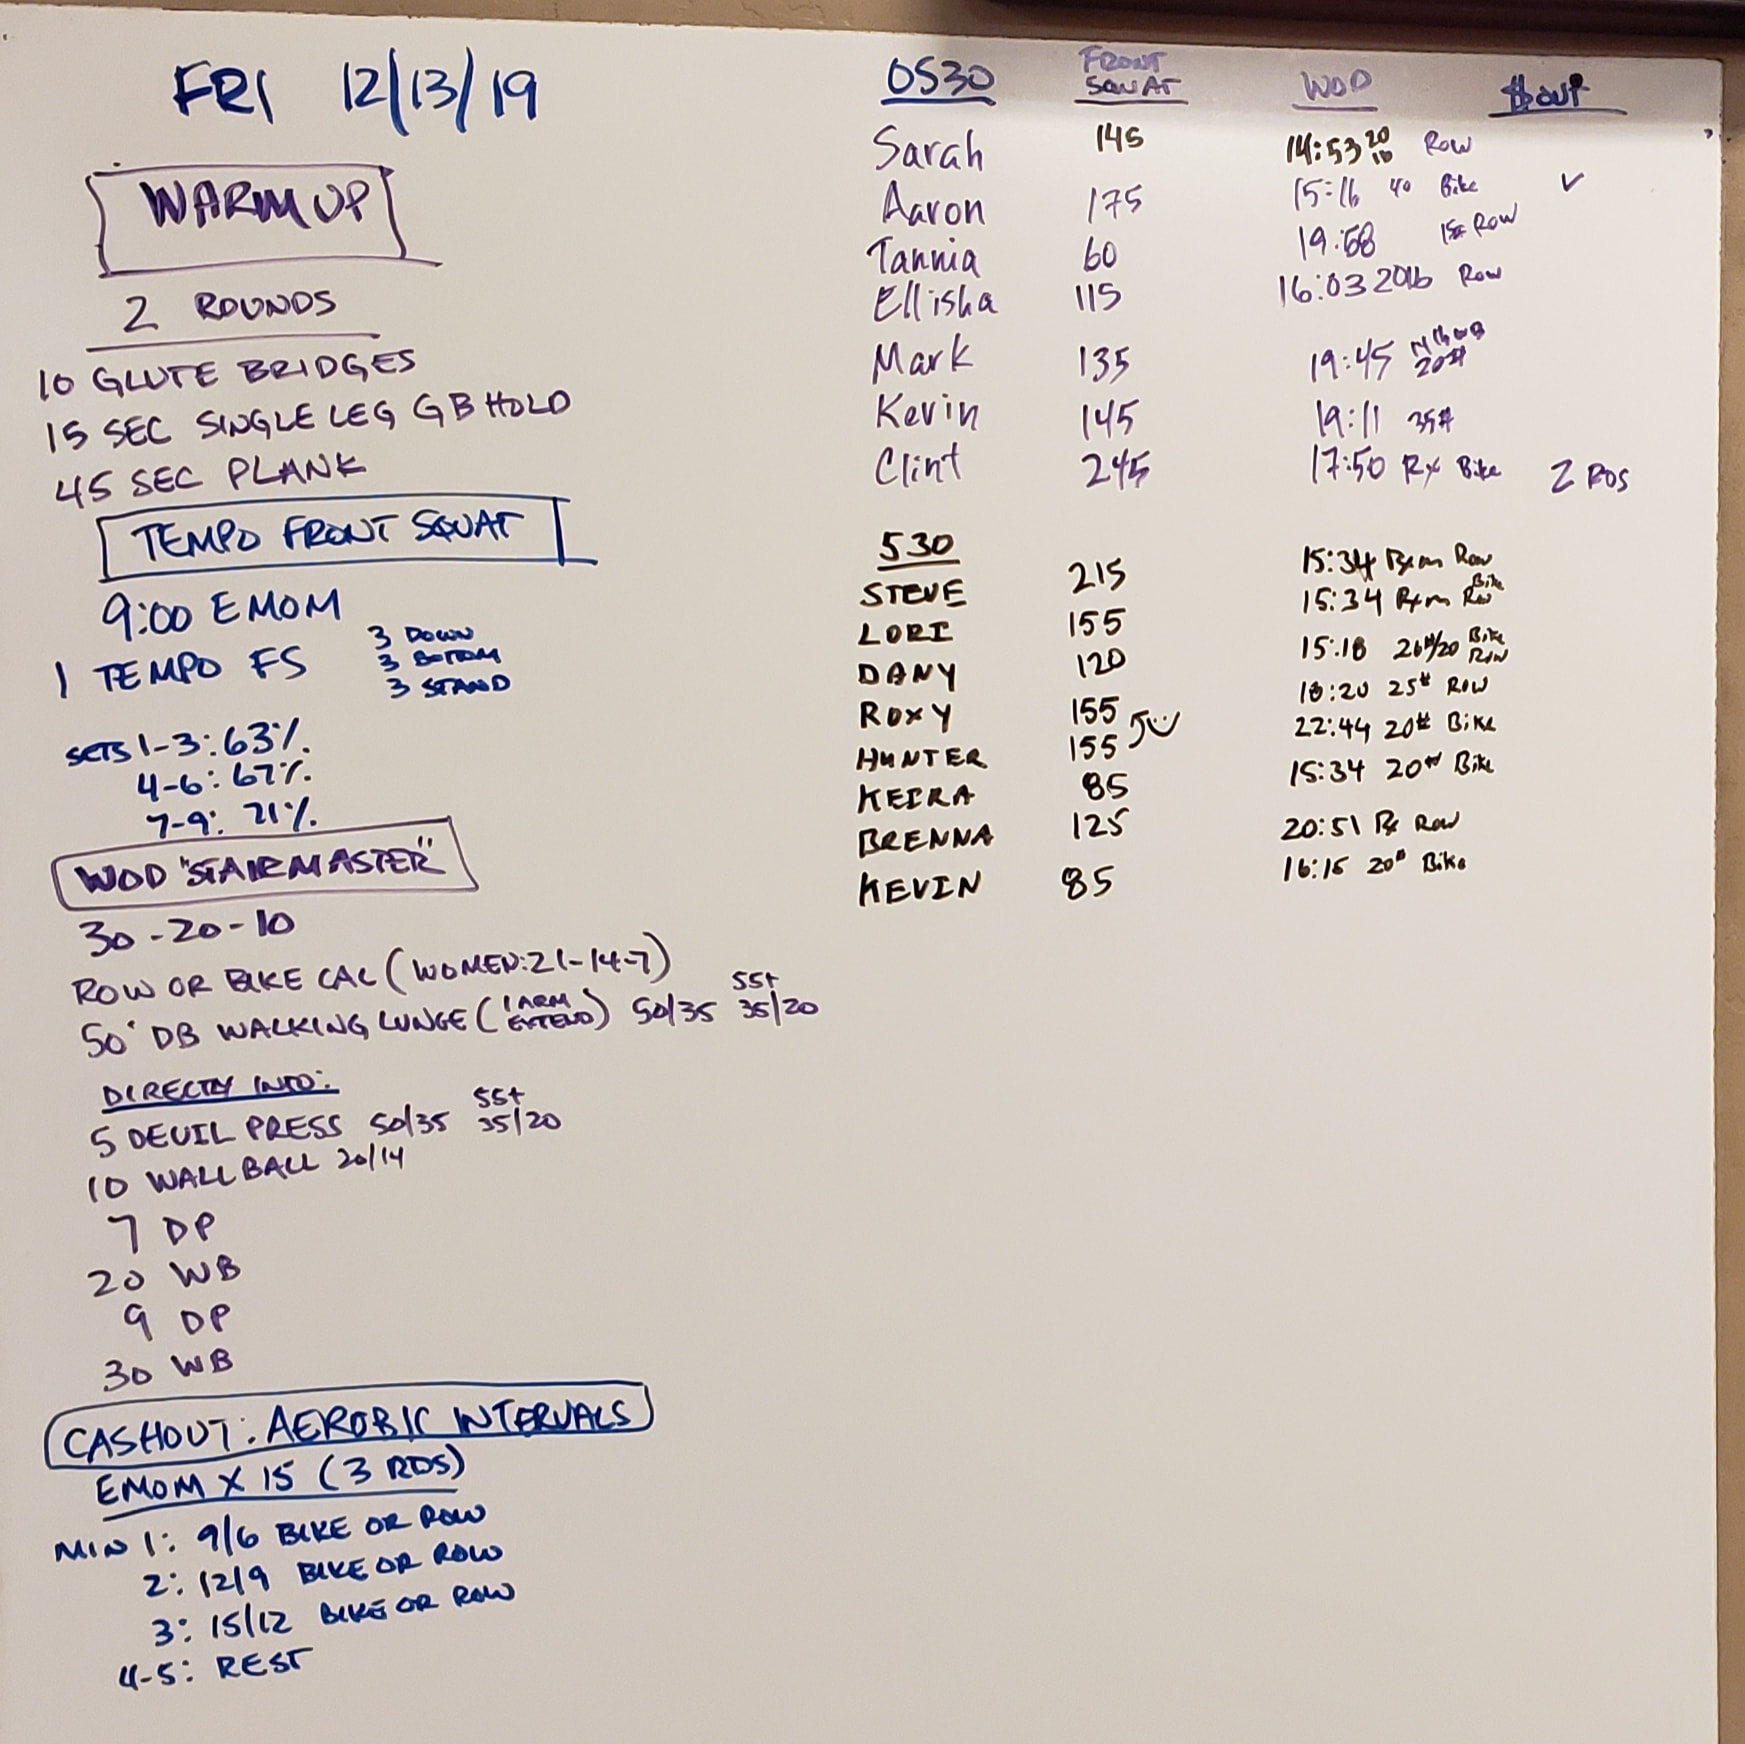 FRI 12/13/19
WARM UP
2 ROUNDS
10 GLUTE BRIDGES
15 SEC SINGLE LEG GB HOLD
45 SEC PLANK
TEMPO FRONT SQUAT
9:00 EMOM
1 TEMPO FS
3 DOWN
3 BOTTOM
3 STAND
SETS 1-3: 63%
4-6: 67%
7-9: 71%
WOD "STAIRMASTER"
30-20-10
ROW OR BIKE CAL (WOMEN: 21-14-7)
50' DB WALKING LUNGE (1 ARM EXTEND) 50/35 55+ 35/20
DIRECTLY INTO:
5 DEVIL PRESS 50/35 55+ 35/20
10 WALLBALL 20/14
7 DP
20 WB
9 DP
30 WB
CASHOUT: AEROBIC INTERVALS
EMOM X 15 (3 RDS)
MIN 1: 9/6 BIKE OR ROW
2: 12/9 BIKE OR ROW
3: 15/12 BIKE OR ROW
4-5: REST
0530 FRONT SQUAT WOD $out
Sarah 145 14:53 20 10 Row
Aaron 175 15:16 40 Bike ✓
Tannia 60 19:58 15# Row
Ellisha 115 16:03 20lb Row
Mark 135 19:45 20#
Kevin 145 19:11 35#
Clint 245 17:50 Rx Bike 2 RDS
530
STEVE 215 15:34 Rxm Row
LORI 155 15:34 Rxm Bike Row
DANY 120 15:18 26#/20 Bike Row
ROXY 155 18:20 25# Row
HUNTER 155 22:44 20# Bike
KEIRA 85 15:34 20# Bike
BRENNA 125 20:51 Rx Row
KEVIN 85 16:15 20# Bike